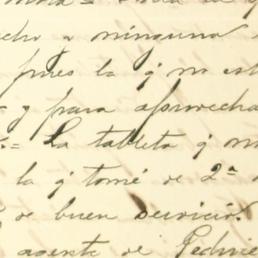 echo a ninguna
pues la q̃ no est
y para aprovecha
.= La tableta q̃ m
la q̃ tomé de 2ª
de buen servicio.
agente de Pedri